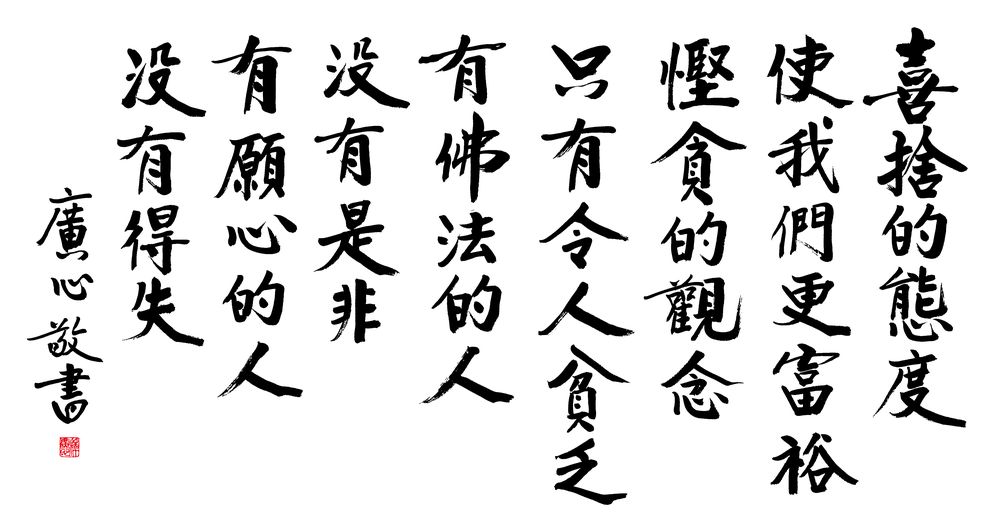 喜捨的態度
使我們更富裕
慳貪的觀念
只有令人貧乏
有佛法的人
没有是非
有願心的人
没有得失
廣心敬書